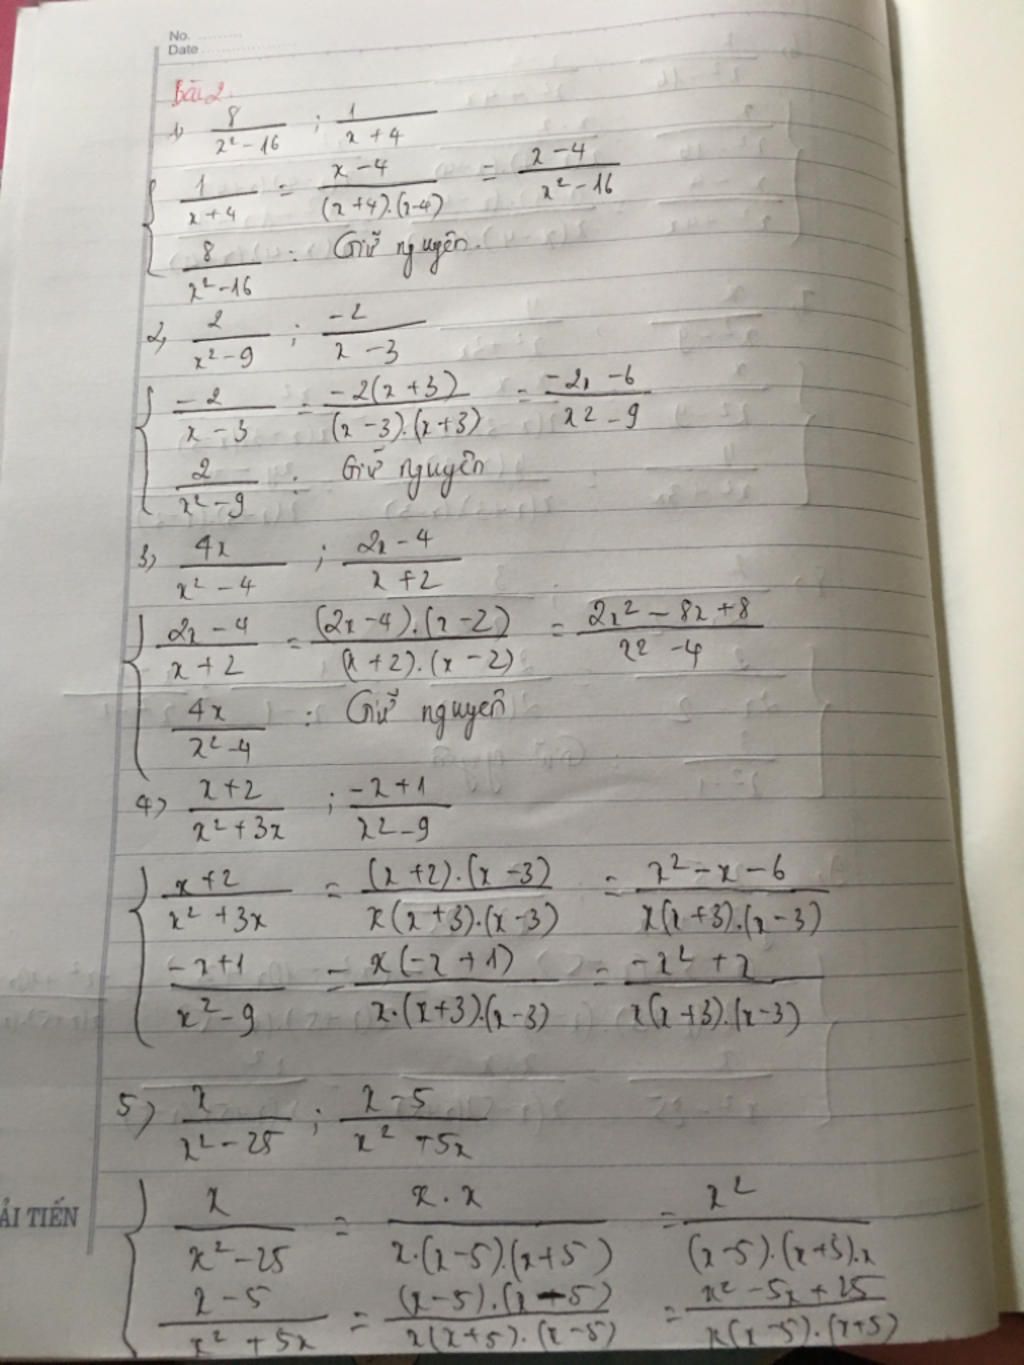 No. ..........
Date ....................
Bài 2.
1) 8/(x² - 16) ; 1/(x + 4)
{ 1/(x + 4) = (x - 4)/((x + 4).(x - 4)) = (x - 4)/(x² - 16)
8/(x² - 16) : Giữ nguyên.
2) 2/(x² - 9) ; -2/(x - 3)
{ -2/(x - 3) = -2(x + 3)/((x - 3).(x + 3)) = (-2x - 6)/(x² - 9)
2/(x² - 9) : Giữ nguyên
3) 4x/(x² - 4) ; (2x - 4)/(x + 2)
{ (2x - 4)/(x + 2) = (2x - 4).(x - 2)/((x + 2).(x - 2)) = (2x² - 8x + 8)/(x² - 4)
4x/(x² - 4) : Giữ nguyên
4) (x + 2)/(x² + 3x) ; (-x + 1)/(x² - 9)
{ (x + 2)/(x² + 3x) = (x + 2).(x - 3)/(x(x + 3).(x - 3)) = (x² - x - 6)/(x(x + 3).(x - 3))
(-x + 1)/(x² - 9) = x(-x + 1)/(x.(x + 3).(x - 3)) = (-x² + x)/(x(x + 3).(x - 3))
5) x/(x² - 25) ; (x - 5)/(x² + 5x)
{ x/(x² - 25) = x.x/(x.(x - 5)(x + 5)) = x²/((x - 5).(x + 5).x)
(x - 5)/(x² + 5x) = (x - 5).(x - 5)/(x(x + 5).(x - 5)) = (x² - 5x + 25)/(x(x - 5).(x + 5))
ẢI TIẾN